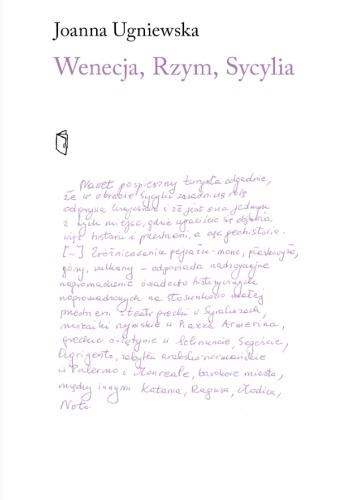 Joanna Ugniewska
Wenecja, Rzym, Sycylia
Nawet pospieszny turysta odgadnie,
że w obrazie Sycylii zasadniczą rolę
odgrywa krajobraz i że jest ona jednym
z tych miejsc, gdzie wyraziście się objawia
więź historii i przestrzeni, a więc geohistoria.
[...] Zróżnicowanie pejzażu – morze, płaskowyże,
góry, wulkany – odpowiada
nagromadzenie historycznych
nagromadzonych na stosunkowo małej
przestrzeni: teatr grecki w Syrakuzach,
mozaiki rzymskie w Piazza Armerina,
greckie świątynie w Selinuncie, Segeście,
Agrigento, zabytki arabsko-normańskie
w Palermo i Monreale, barokowe miasta,
między innymi Katania, Ragusa, Modica,
Noto.